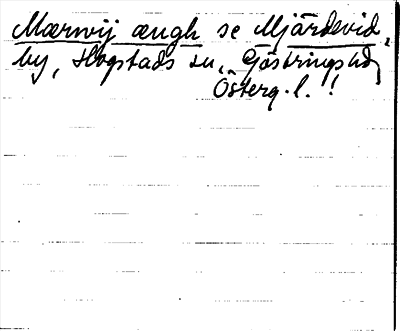 Mærwij ængh se Mjärdevid,
by, Hogstads sn, Göstrings hd
Österg. l. !!